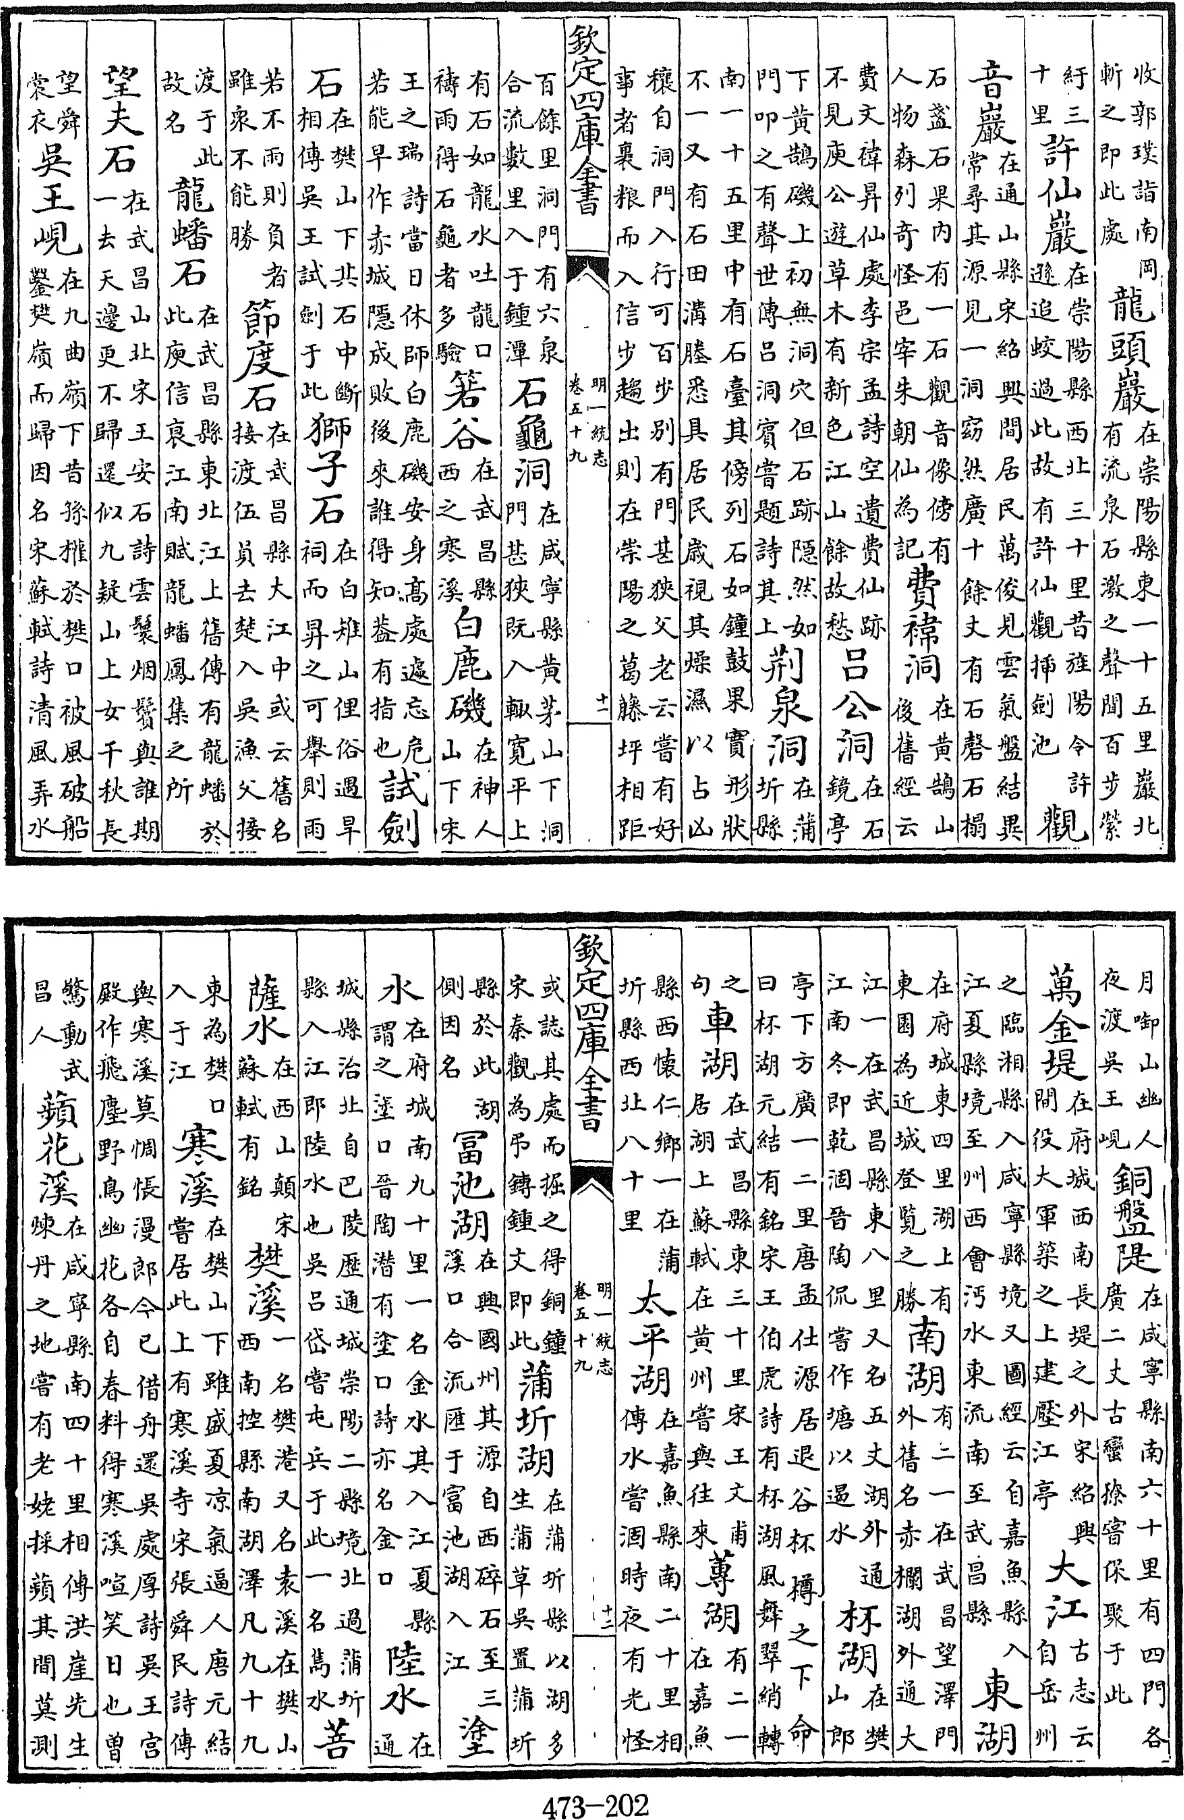 收郭璞詣南岡
斬之即此處
龍頭巖
在崇陽縣東一十五里巖北
有流泉石激之聲聞百步縈
紆三
十里
許仙巖
在崇陽縣西北三十里昔旌陽令許
遜追蛟過此故有許仙觀揷劍池
觀
音巖
在通山縣宋紹興間居民萬俊見雲氣盤結異
常尋其源見一洞窈然廣十餘丈有石磬石榻
石盞石果内有一石觀音像傍有
人物森列奇怪邑宰朱朝仙為記
費褘洞
在黄鵠山
後舊經云
費文褘昇仙處李宗孟詩空遺費仙跡
不見庾公遊草木有新色江山餘故愁
吕公洞
在石
鏡亭
下黄鵠磯上初無洞穴但石跡隠然如
門叩之有聲世傳吕洞賓嘗題詩其上
荆泉洞
在蒲
圻縣
南一十五里中有石臺其傍列石如鐘鼓果實形狀
不一又有石田溝塍悉具居民歲視其燥濕以占凶
穰自洞門入行可百步别有門甚狹父老云嘗有好
事者裹粮而入信步趨出則在崇陽之葛藤坪相距
欽定四庫全書
明一統志
卷五十九
十一
百餘里洞門有六泉
合流數里入于鍾潭
石龜洞
在咸寧縣黄茅山下洞
門甚狹既入輙寛平上
有石如龍水吐龍口
禱雨得石龜者多驗
箬谷
在武昌縣
西之寒溪
白鹿磯
在神人
山下宋
王之瑞詩當日休師白鹿磯安身髙處遽忘危
若能早作赤城隠成敗後來誰得知葢有指也
試劍
石
在樊山下共石中斷
相傳吳王試劍于此
獅子石
在白雉山俚俗遇旱
祠而舁之可舉則雨
若不雨則負者
雖衆不能勝
節度石
在武昌縣大江中或云舊名
接渡伍員去楚入吳漁父接
渡于此
故名
龍蟠石
在武昌縣東北江上舊傳有龍蟠於
此庾信哀江南賦龍蟠鳳集之所
望夫石
在武昌山北宋王安石詩雲鬟烟鬢與誰期
一去天邊更不歸還似九疑山上女千秋長
望舜
裳衣
吳王峴
在九曲嶺下昔孫權於樊口被風破船
鑿樊嶺而歸因名宋蘇軾詩清風弄水
月啣山幽人
夜渡吳王峴
銅盤隄
在咸寧縣南六十里有四門各
廣二丈古蠻獠嘗保聚于此
萬金堤
在府城西南長堤之外宋紹興
間役大軍築之上建壓江亭
大江
古志云
自岳州
之臨湘縣入咸寧縣境又圖經云自嘉魚縣入
江夏縣境至州西會沔水東流南至武昌縣
東湖
在府城東四里湖上有
東園為近城登覽之勝
南湖
有二一在武昌望澤門
外舊名赤欄湖外通大
江一在武昌縣東八里又名五丈湖外通
江南冬即乾涸晉陶侃嘗作塘以遏水
杯湖
在樊
山郎
亭下方廣一二里唐孟仕源居退谷杯樽之下命
曰杯湖元結有銘宋王伯虎詩有杯湖風舞翠綃轉
之
句
車湖
在武昌縣東三十里宋王文甫
居湖上蘇軾在黄州嘗與往來
蓴湖
有二一
在嘉魚
縣西懷仁鄉一在蒲
圻縣西北八十里
太平湖
在嘉魚縣南二十里相
傳水嘗涸時夜有光怪
欽定四庫全書
明一統志
卷五十九
十二
或誌其處而掘之得銅鐘
宋秦觀為弔鏄鍾文即此
蒲圻湖
在蒲圻縣以湖多
生蒲草吳置蒲圻
縣於此湖
側因名
冨池湖
在興國州其源自西碎石至三
溪口合流匯于富池湖入江
塗
水
在府城南九十里一名金水其入江夏縣
謂之塗口晉陶潛有塗口詩亦名金口
陸水
在
通
城縣治北自巴陵歷通城崇陽二縣境北過蒲圻
縣入江即陸水也吳吕岱嘗屯兵于此一名雋水
菩
薩水
在西山顛宋
蘇軾有銘
樊溪
一名樊港又名袁溪在樊山
西南控縣南湖澤凡九十九
東為樊口
入于江
寒溪
在樊山下雖盛夏凉氣逼人唐元結
嘗居此上有寒溪寺宋張舜民詩傳
與寒溪莫惆悵漫郎今已借舟還吳處厚詩吳王宫
殿作飛塵野鳥幽花各自春料得寒溪喧笑日也曾
驚動武
昌人
蘋花溪
在咸寧縣南四十里相傳洪崖先生
煉丹之地嘗有老姥採蘋其間莫測
473-202